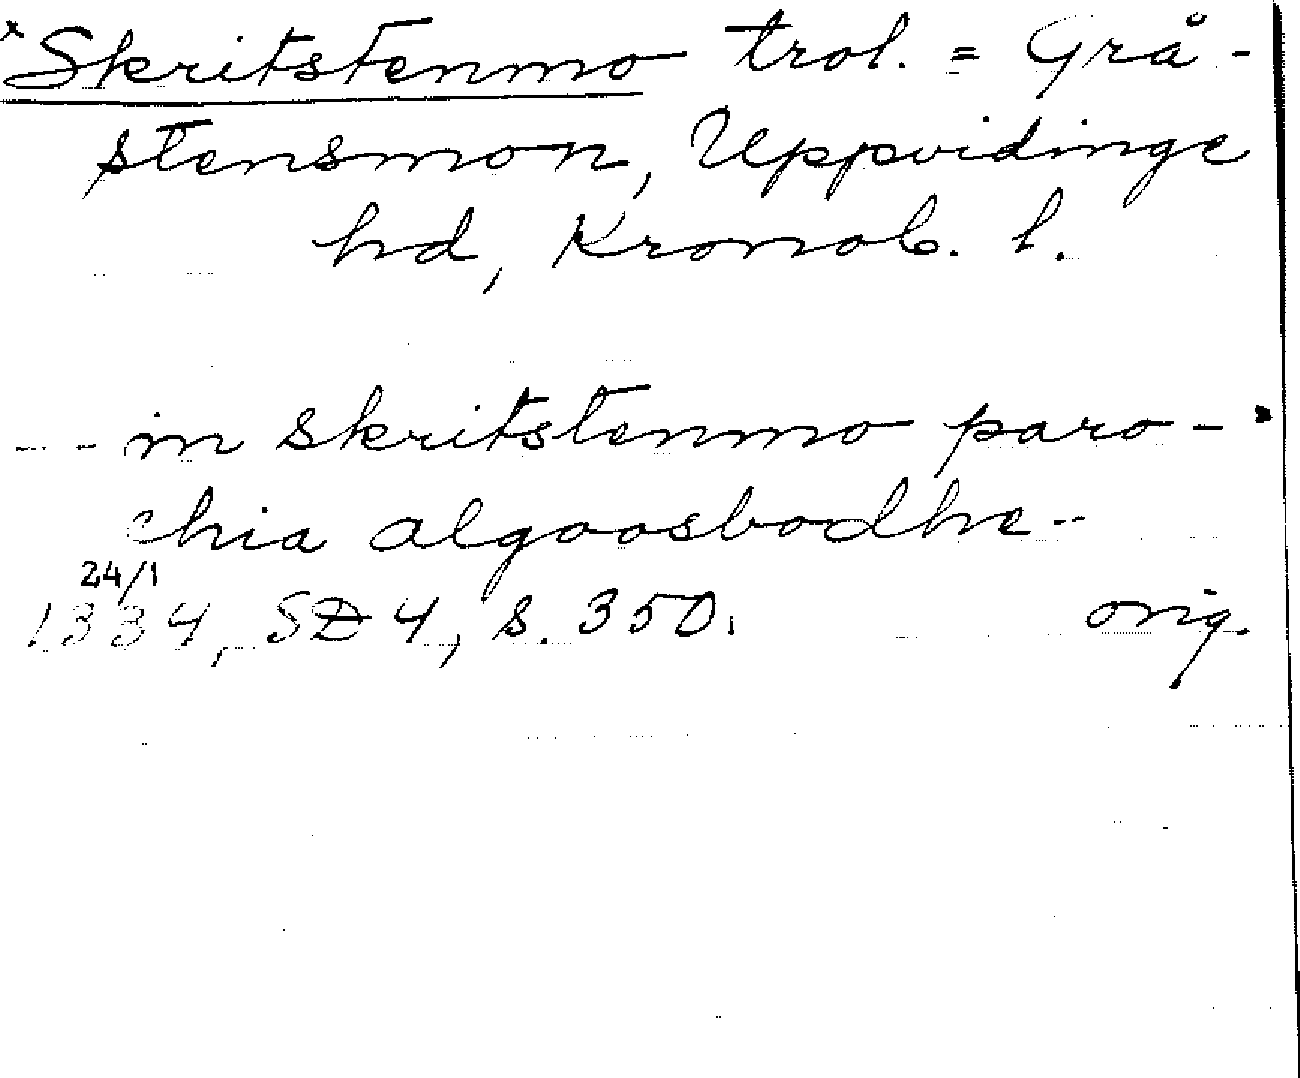 *Skritstenmo trol. = Grå-
stensmon, Uppvidinge
hd, Kronob. l.
--- in skritstenmo paro-
chia algoosbodhe--
24/1
1334, SD 4, s. 350. orig.